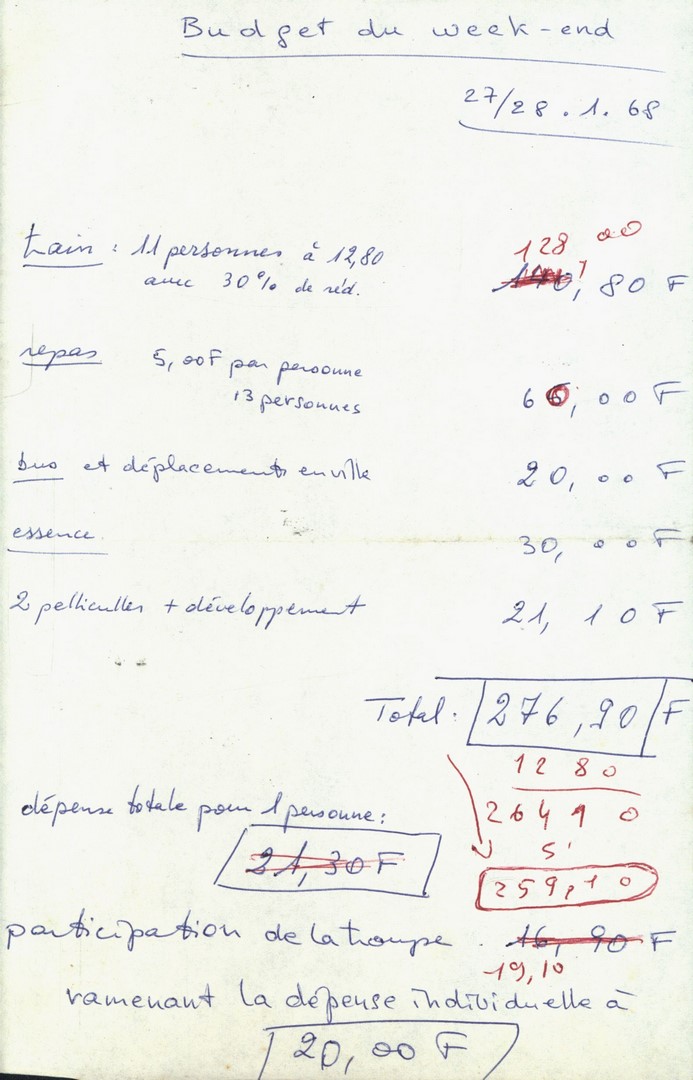 Budget du week-end
27/28.1.68
train : 11 personnes à 12,80
avec 30% de réd.
128 00
140,80 F
repas 5,00F par personne
13 personnes
65,00 F
bus et déplacements en ville 20,00 F
essence 30,00 F
2 pelliculles + développement 21,10 F
Total : 276,90 F
12 80
dépense totale pour 1 personne :
264 10
5
21,30 F
259,10
participation de la troupe. 16,90 F
19,10
ramenant la dépense individuelle à
20,00 F